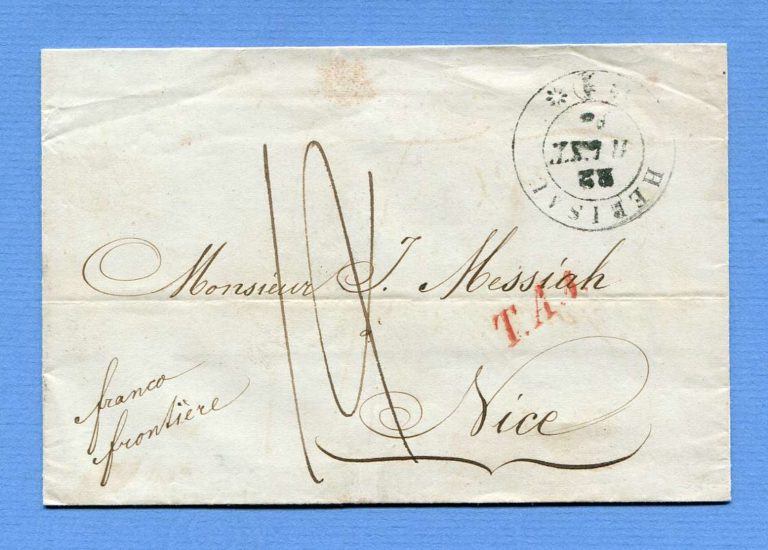 HERISAU
22
Monsieur J. Messiah
T.A.
Nice
franco
frontière